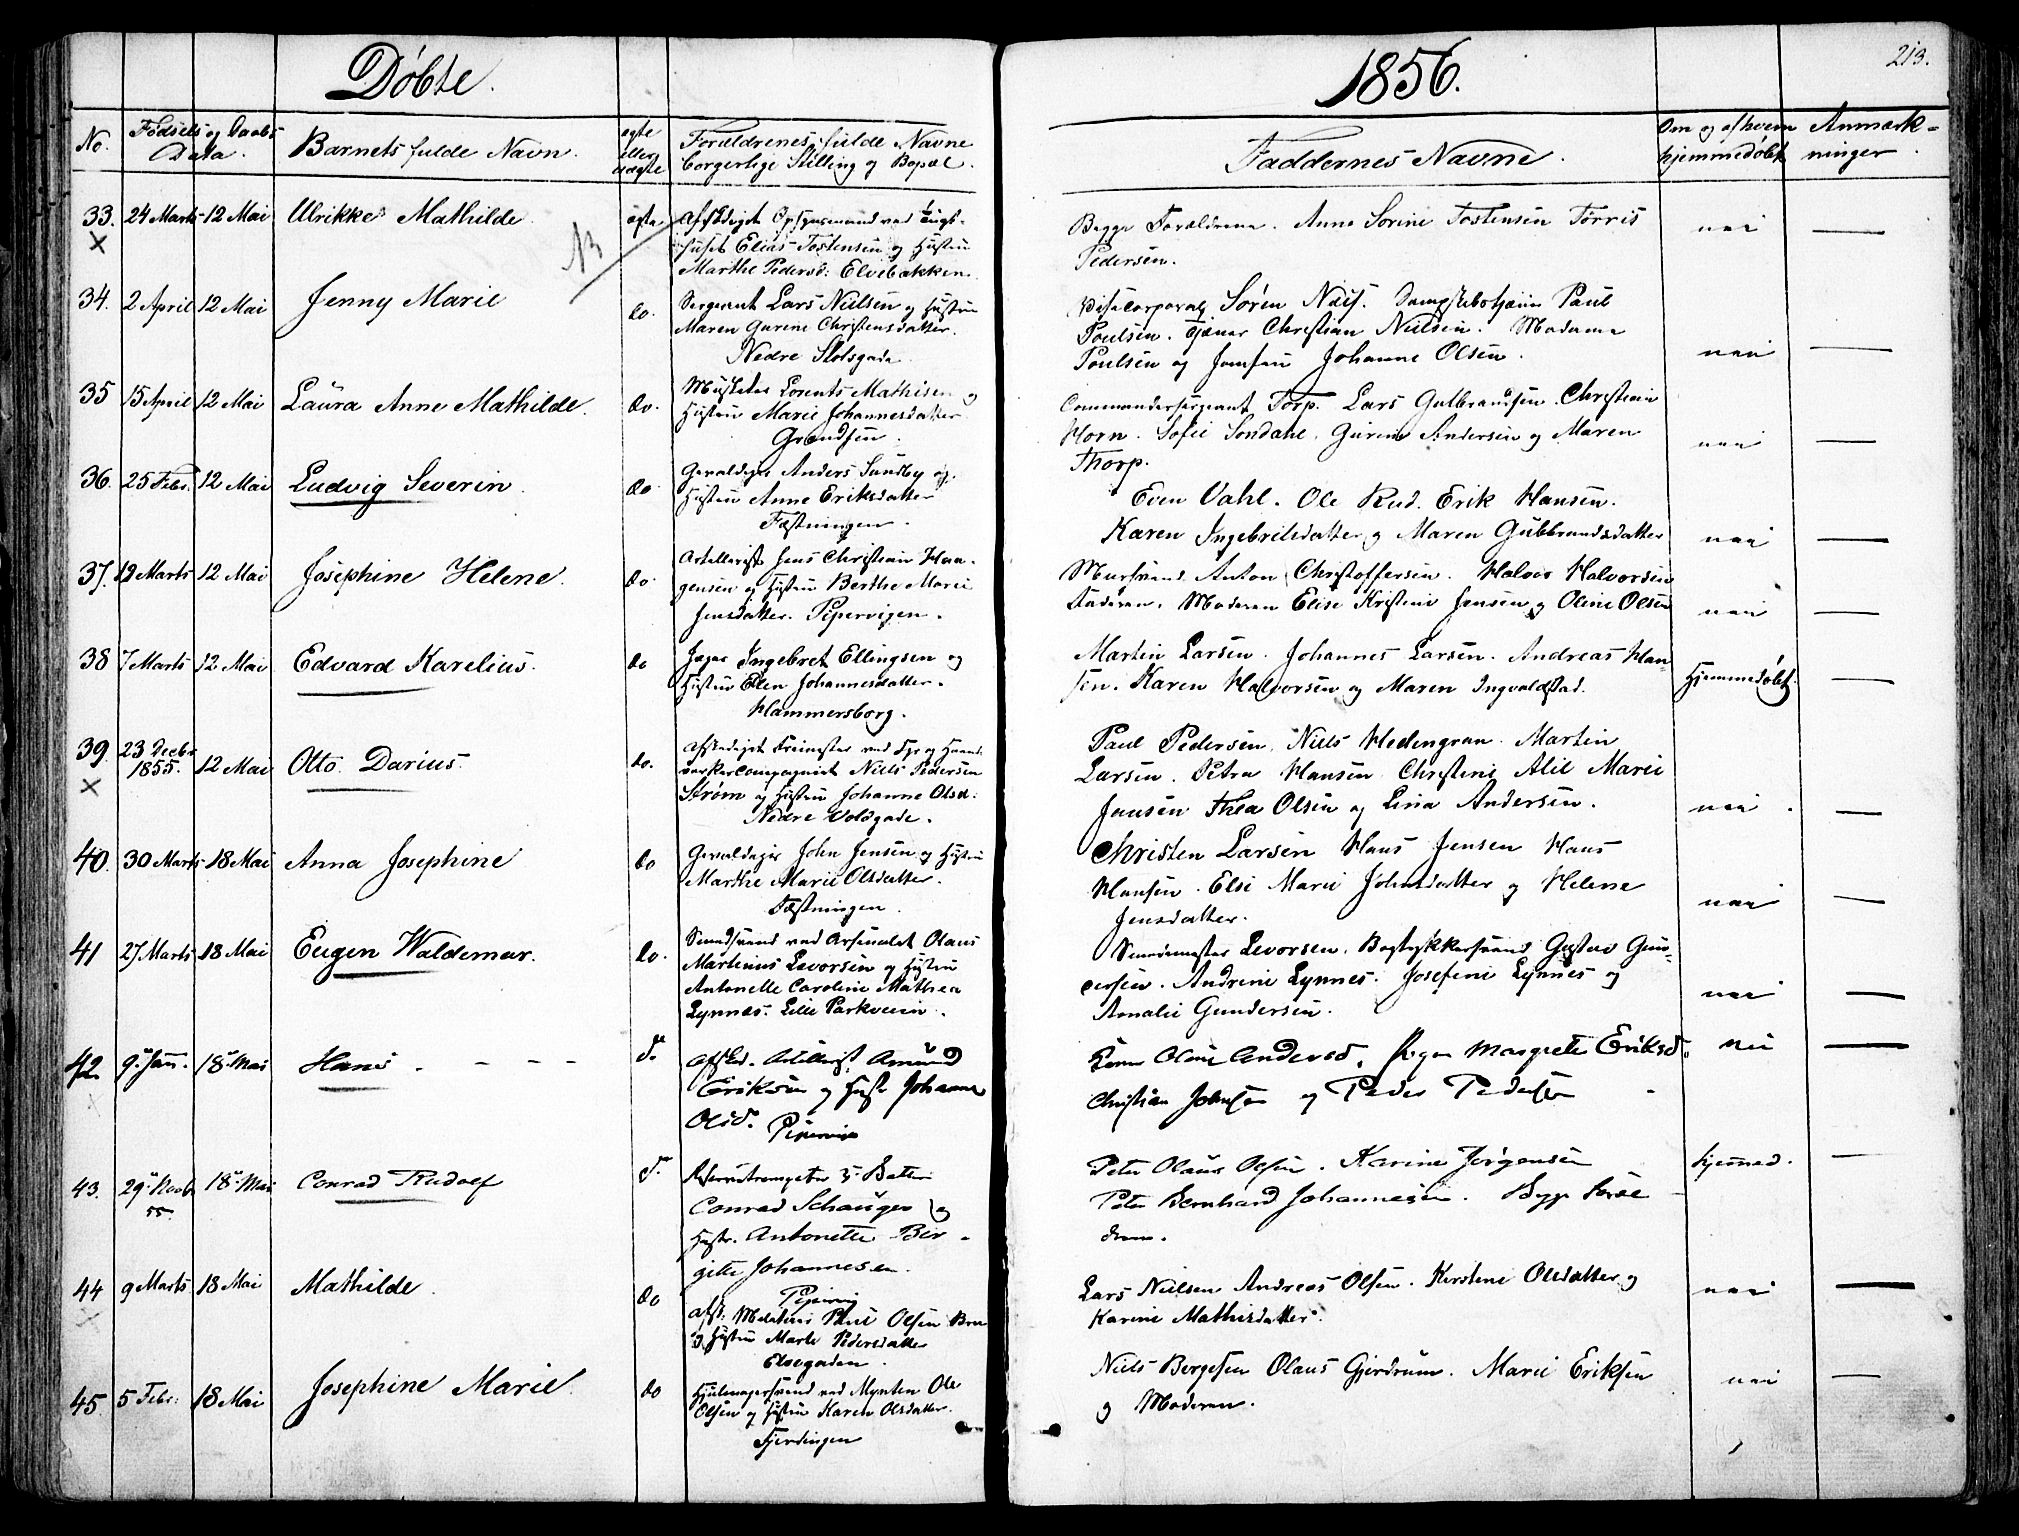 Døbte.
No.
Fødsels og Daabs
Data.
Barnets fulde Navn.
ægte
eller
uægte
Forældrenes fulde Navne
borgerlige Stilling og Bopæl.
33. 24 Marts 12 Mai Ulrikke Mathilde ægte Afskediget Opsynsmand ved
huset Elias Tostensen og Hustru
Marthe Pedersd: Elvebakken.
34. 2 April 12 Mai Jenny Marie do. Sergeant Lars Nielsen og Hustru
Maren Gurine Christensdatter.
Nedre Slotsgade.
35 15 April 12 Mai Laura Anne Mathilde. do. Musketer Lorents Mathisen og
Hustru Marie Johannesdatter
Grændsen.
36. 25 Febr. 12 Mai Ludvig Severin. do Gevaldiger Anders Sundby og
Hustru Anne Eriksdatter
Fæstningen.
37. 12 Marts 12 Mai Josephine Helene. do. Artillerist Jens Christian Haa-
gensen og Hustru Berthe Marie
Jensdatter. Pipervigen.
38 7 Marts 12 Mai Edvard Karelius. do Jæger Ingebret Ellingsen og
Hustru Ellen Johannesdatter.
Hammersborg.
39. 23 Decbr 1855. 12 Mai Otto Darius. do. Afskediget ved Fyr og Haand-
værkercompagniet Niels Pedersen
Strøm og Hustru Johanne Olsd:
Nedre Voldgade.
40. 30 Marts 18 Mai Anna Josephine do Gevaldiger John Jensen og Hustru
Marthe Marie Olsdatter.
Fæstningen.
41 27 Marts 18 Mai Eugen Waldemar. do. Smedsvend ved Arsenalet Olaus
Martinius Levorsen og Hustru
Antonette Caroline Mathea
Lynnes. Lille Parkveien.
42. 9 Jan. 18 Mai Hans - - - d. Afsked. Artillerist Amund
Eriksen og Hustr Johanne
Olsd. Pipervigen
43. 29 Novb 55. 18 Mai Conrad Rudolf d. 5 Batteri
Conrad Schauger og
Hustr. Antonette Bir-
gitte Johannesen.
Pipervig
44 9 Marts 18 Mai Mathilde. do Afsk. Paul Olsen Bru
og Hustru Marte Pedersdatter
Elvegaden.
45. 5 Febr: 18 Mai Josephine Marie. do Hjulmagersvend ved Mynten Ole
Olsen og Hustru Karen Olsdatter.
Fjerdingen
1856.
213.
Faddernes Navne.
Om og af hvem
hjemmedøbt
Anmærk-
ninger.
Begge Forældrene. Anne Sorine Tostensen Tørris
Pedersen. nei
Vicecorporal Søren Næss. Paul
Poulsen. Tjener Christian Nielsen. Madame
Poulsen og Jomfru Johanne Olsen. nei
Commandersergeant Torp. Lars Gulbrandsen. Christian
Horn. Sofie Sondahl. Gurine Andersen og Maren
Thorp. nei
Even Dahl. Ole Rud. Erik Hansen.
Karen Ingebrilsdatter og Maren Gulbrandsdatter nei
Mursvend Anton Christoffersen. Halvor Halvorsen
Faderen. Moderen Elise Kristine Jensen og Oline Olsen nei
Martin Larsen. Johannes Larsen. Andreas Han-
sen. Karen Halvorsen og Maren Ingvaldstad. Hjemmedøbt.
Paul Pedersen. Niels Hedengran. Martin
Larsen. Petra Hansen. Christine Alie Marie
Jansen Thea Olsen og Lina Andersen. nei
Christen Larsen Hans Jensen Hans
Hansen. Else Marie Johnsdatter og Helene
Jensdatter. nei
Smedmester Levorsen. Bogtrykkersvend Gustav Gun-
dersen. Andrine Lynnes. Josefine Lynnes og
Amalie Gundersen. nei
Olane Andersd. Pigen Margrete Eriksd. nei
Christian Johnsen og Peder Pedersen
Peter Olaus Olsen. Karine Jørgensen hjemmed.
Peter Bernhard Johannesen. Begge Foræl-
drene.
Lars Nielsen Andreas Olsen. Kirstine Olsdatter og
Karine Mathisdatter. nei
Niels Bergesen Olaus Gjerdrum. Marie Eriksen
og Moderen. nei